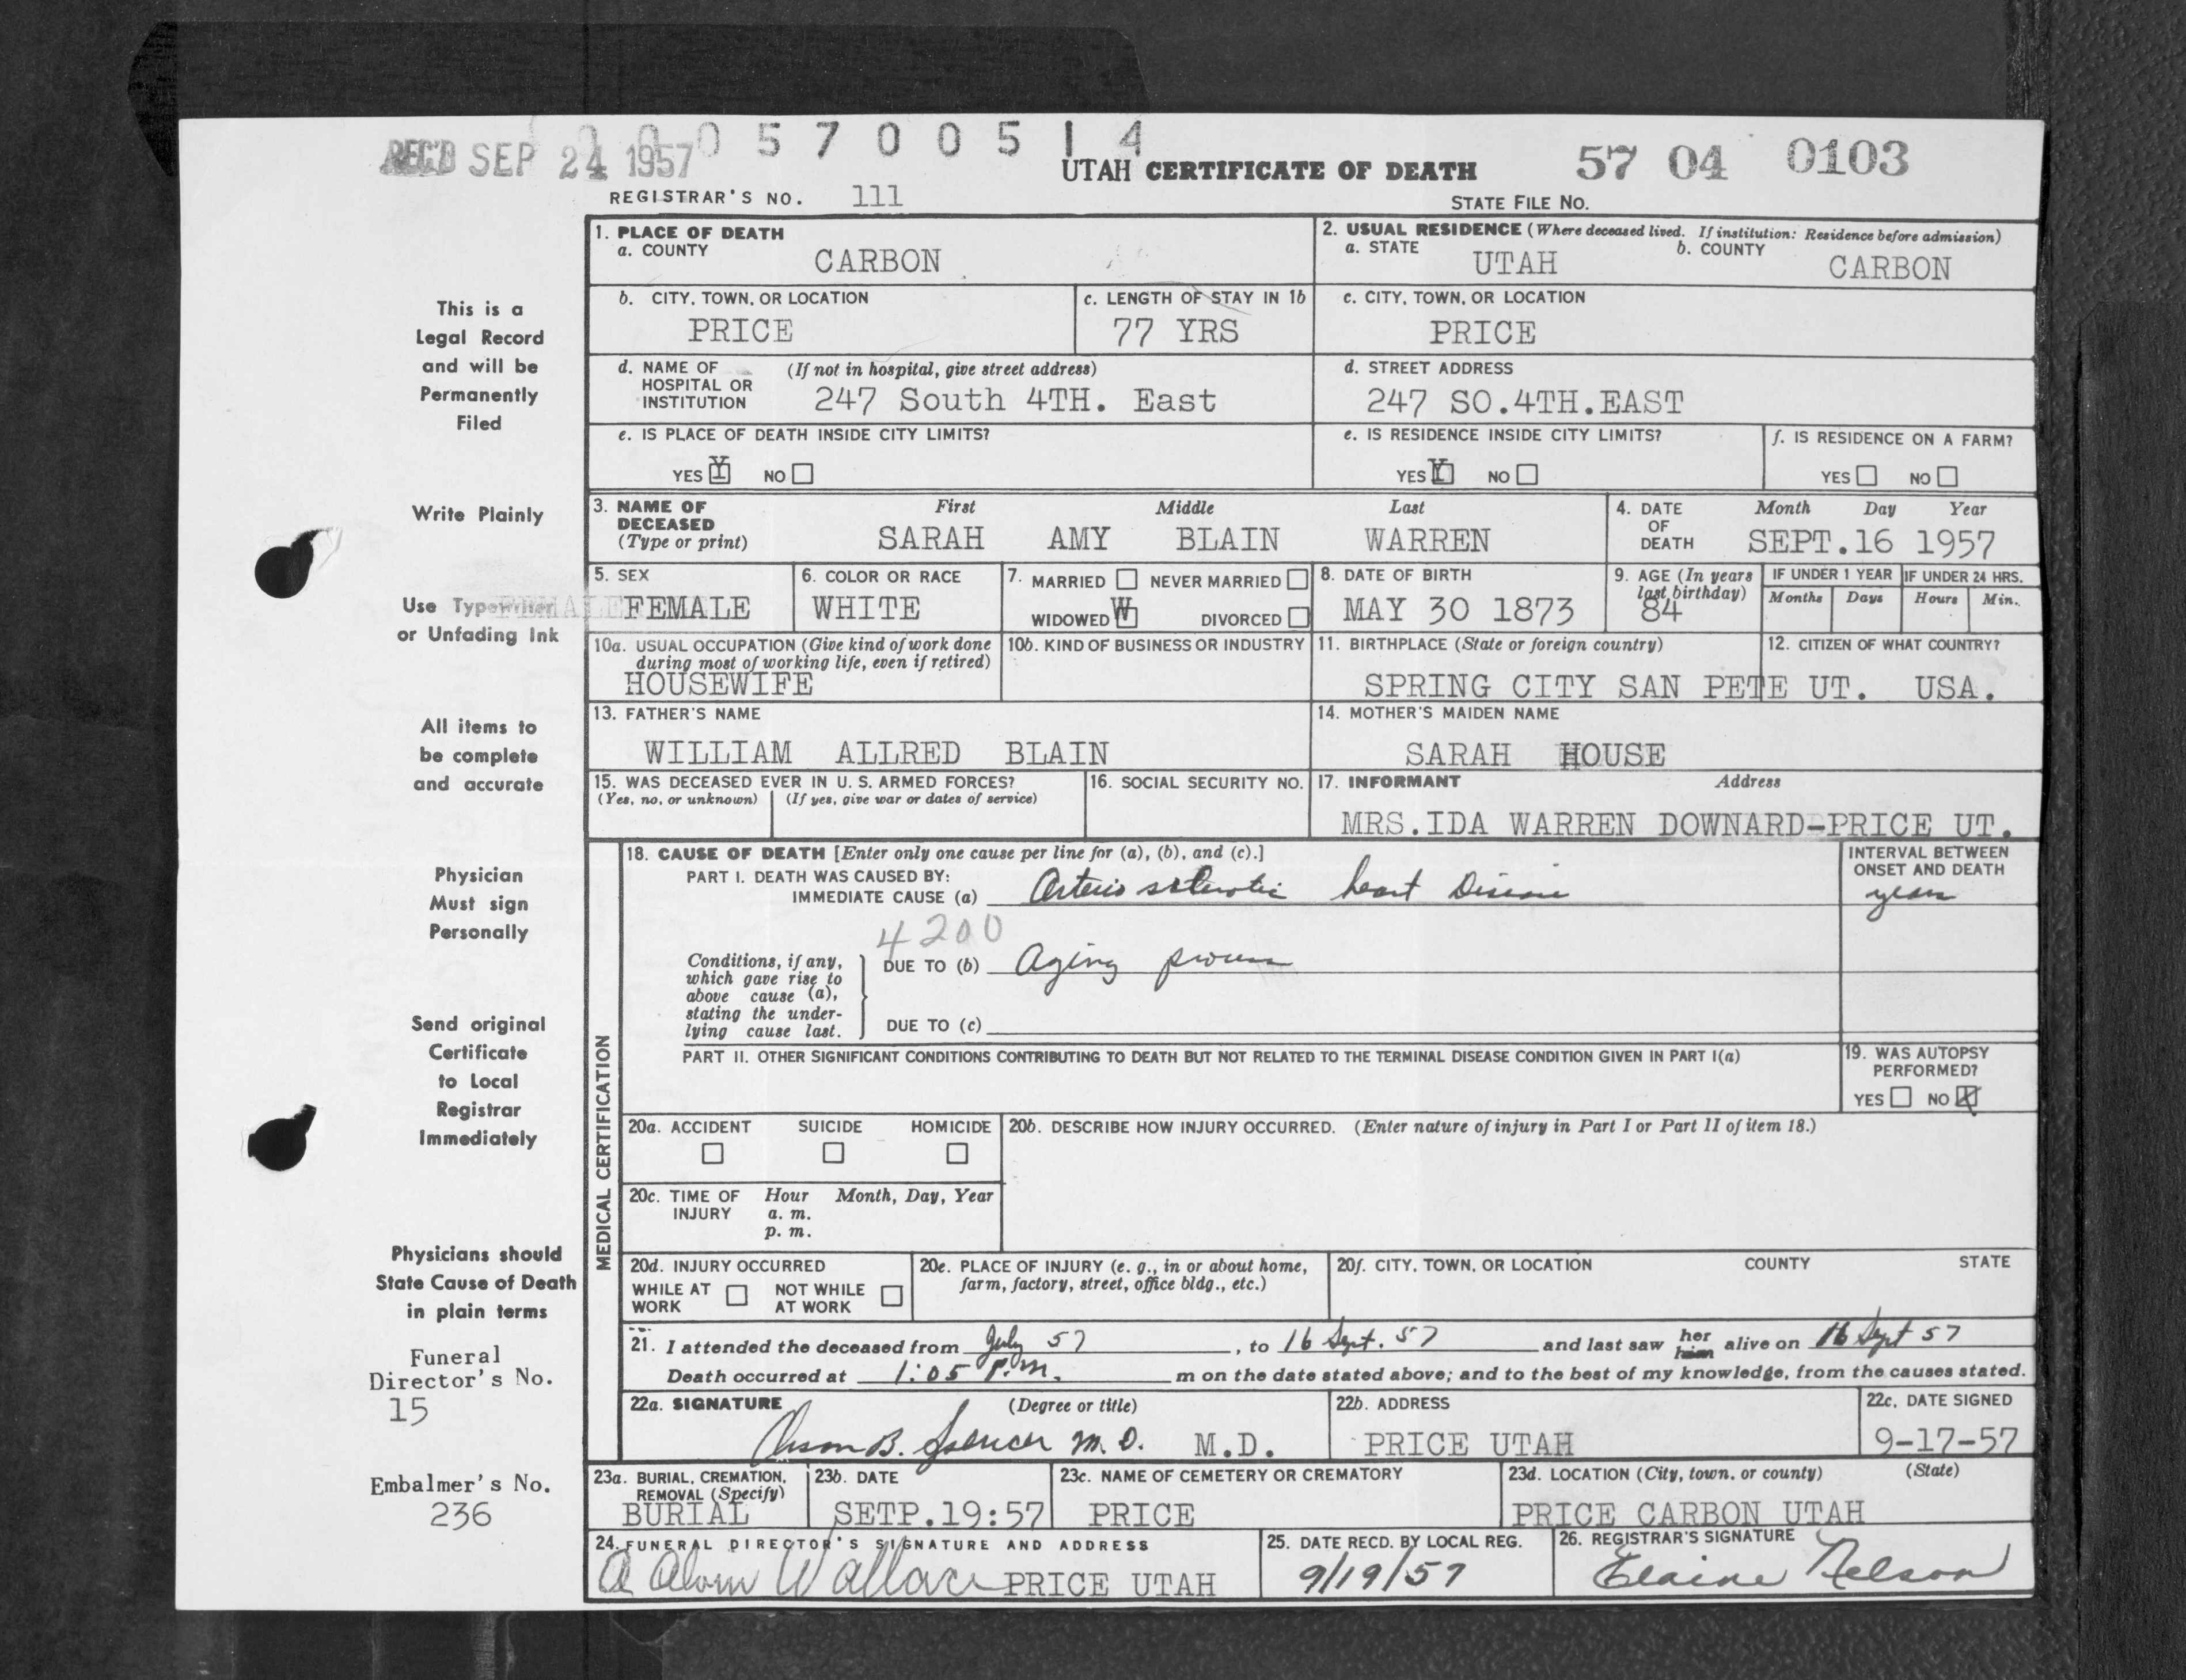 REC'D SEP 24 1957
0 0 0 5 7 0 0 5 1 4
UTAH CERTIFICATE OF DEATH
57 04 0103
REGISTRAR'S NO. 111
STATE FILE NO.
This is a
Legal Record
and will be
Permanently
Filed
Write Plainly
Use Typewriter
or Unfading Ink
All items to
be complete
and accurate
Physician
Must sign
Personally
Send original
Certificate
to Local
Registrar
Immediately
Physicians should
State Cause of Death
in plain terms
Funeral
Director's No.
15
Embalmer's No.
236
1. PLACE OF DEATH
a. COUNTY
CARBON
2. USUAL RESIDENCE (Where deceased lived. If institution: Residence before admission)
a. STATE UTAH b. COUNTY CARBON
b. CITY, TOWN, OR LOCATION
PRICE
c. LENGTH OF STAY IN 1b
77 YRS
c. CITY, TOWN, OR LOCATION
PRICE
d. NAME OF HOSPITAL OR INSTITUTION (If not in hospital, give street address)
247 South 4TH. East
d. STREET ADDRESS
247 SO.4TH.EAST
e. IS PLACE OF DEATH INSIDE CITY LIMITS?
YES Y NO
e. IS RESIDENCE INSIDE CITY LIMITS?
YES Y NO
f. IS RESIDENCE ON A FARM?
YES NO
3. NAME OF DECEASED (Type or print)
First Middle Last
SARAH AMY BLAIN WARREN
4. DATE OF DEATH
Month Day Year
SEPT.16 1957
5. SEX
FEMALE
6. COLOR OR RACE
WHITE
7. MARRIED NEVER MARRIED
WIDOWED W DIVORCED
8. DATE OF BIRTH
MAY 30 1873
9. AGE (In years last birthday)
84
IF UNDER 1 YEAR
Months Days
IF UNDER 24 HRS.
Hours Min.
10a. USUAL OCCUPATION (Give kind of work done during most of working life, even if retired)
HOUSEWIFE
10b. KIND OF BUSINESS OR INDUSTRY
11. BIRTHPLACE (State or foreign country)
SPRING CITY SAN PETE UT.
12. CITIZEN OF WHAT COUNTRY?
USA.
13. FATHER'S NAME
WILLIAM ALLRED BLAIN
14. MOTHER'S MAIDEN NAME
SARAH HOUSE
15. WAS DECEASED EVER IN U. S. ARMED FORCES?
(Yes, no, or unknown) (If yes, give war or dates of service)
16. SOCIAL SECURITY NO.
17. INFORMANT Address
MRS.IDA WARREN DOWNARD-PRICE UT.
MEDICAL CERTIFICATION
18. CAUSE OF DEATH [Enter only one cause per line for (a), (b), and (c).]
PART I. DEATH WAS CAUSED BY:
IMMEDIATE CAUSE (a) Arterio sclerotic heart Disease
INTERVAL BETWEEN ONSET AND DEATH
years
4200
Conditions, if any, which gave rise to above cause (a), stating the underlying cause last.
DUE TO (b) Aging process
DUE TO (c)
PART II. OTHER SIGNIFICANT CONDITIONS CONTRIBUTING TO DEATH BUT NOT RELATED TO THE TERMINAL DISEASE CONDITION GIVEN IN PART I(a)
19. WAS AUTOPSY PERFORMED?
YES NO X
20a. ACCIDENT SUICIDE HOMICIDE
20b. DESCRIBE HOW INJURY OCCURRED. (Enter nature of injury in Part I or Part II of item 18.)
20c. TIME OF INJURY Hour Month, Day, Year
a. m.
p. m.
20d. INJURY OCCURRED
WHILE AT WORK NOT WHILE AT WORK
20e. PLACE OF INJURY (e. g., in or about home, farm, factory, street, office bldg., etc.)
20f. CITY, TOWN, OR LOCATION COUNTY STATE
21. I attended the deceased from July 57, to 16 Sept. 57 and last saw her him alive on 16 Sept 57
Death occurred at 1:05 P.M. m on the date stated above; and to the best of my knowledge, from the causes stated.
22a. SIGNATURE (Degree or title)
B. Spencer M.D. M.D.
22b. ADDRESS
PRICE UTAH
22c. DATE SIGNED
9-17-57
23a. BURIAL, CREMATION, REMOVAL (Specify)
BURIAL
23b. DATE
SETP.19:57
23c. NAME OF CEMETERY OR CREMATORY
PRICE
23d. LOCATION (City, town, or county) (State)
PRICE CARBON UTAH
24. FUNERAL DIRECTOR'S SIGNATURE AND ADDRESS
Wallace PRICE UTAH
25. DATE RECD. BY LOCAL REG.
9/19/57
26. REGISTRAR'S SIGNATURE
Elaine Nelson